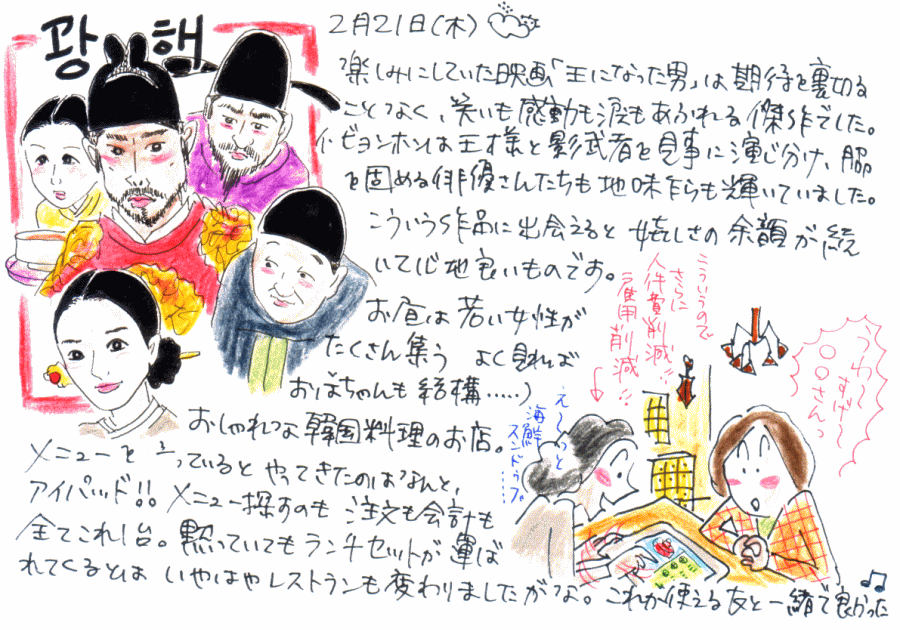 광해
2月21日(木)
楽しみにしていた映画「王になった男」は期待を裏切る
ことなく、笑いも感動も涙もあふれる傑作でした。
イ・ビョンホンは王様と影武者を見事に演じ分け、脇
を固める俳優さんたちも地味ながらも輝いていました。
こういう作品に出会えると嬉しさの余韻が続
いて心地良いものです。
お昼は若い女性が
たくさん集う よく見れば
おばちゃんも結構……)
おしゃれな韓国料理のお店。
メニューを待っているとやってきたのはなんと、
アイパッド!!メニュー探すのも注文も会計も
全てこれ1台。黙っていてもランチセットが運ば
れてくるとは いやはやレストランも変わりましたがな。これが使える友と一緒で良かった♫
こういうので
さらに
人件費削減!!
雇用削減
え〜っと
海鮮
スンドゥブ…
うわ〜
すげ〜
○○さんっ